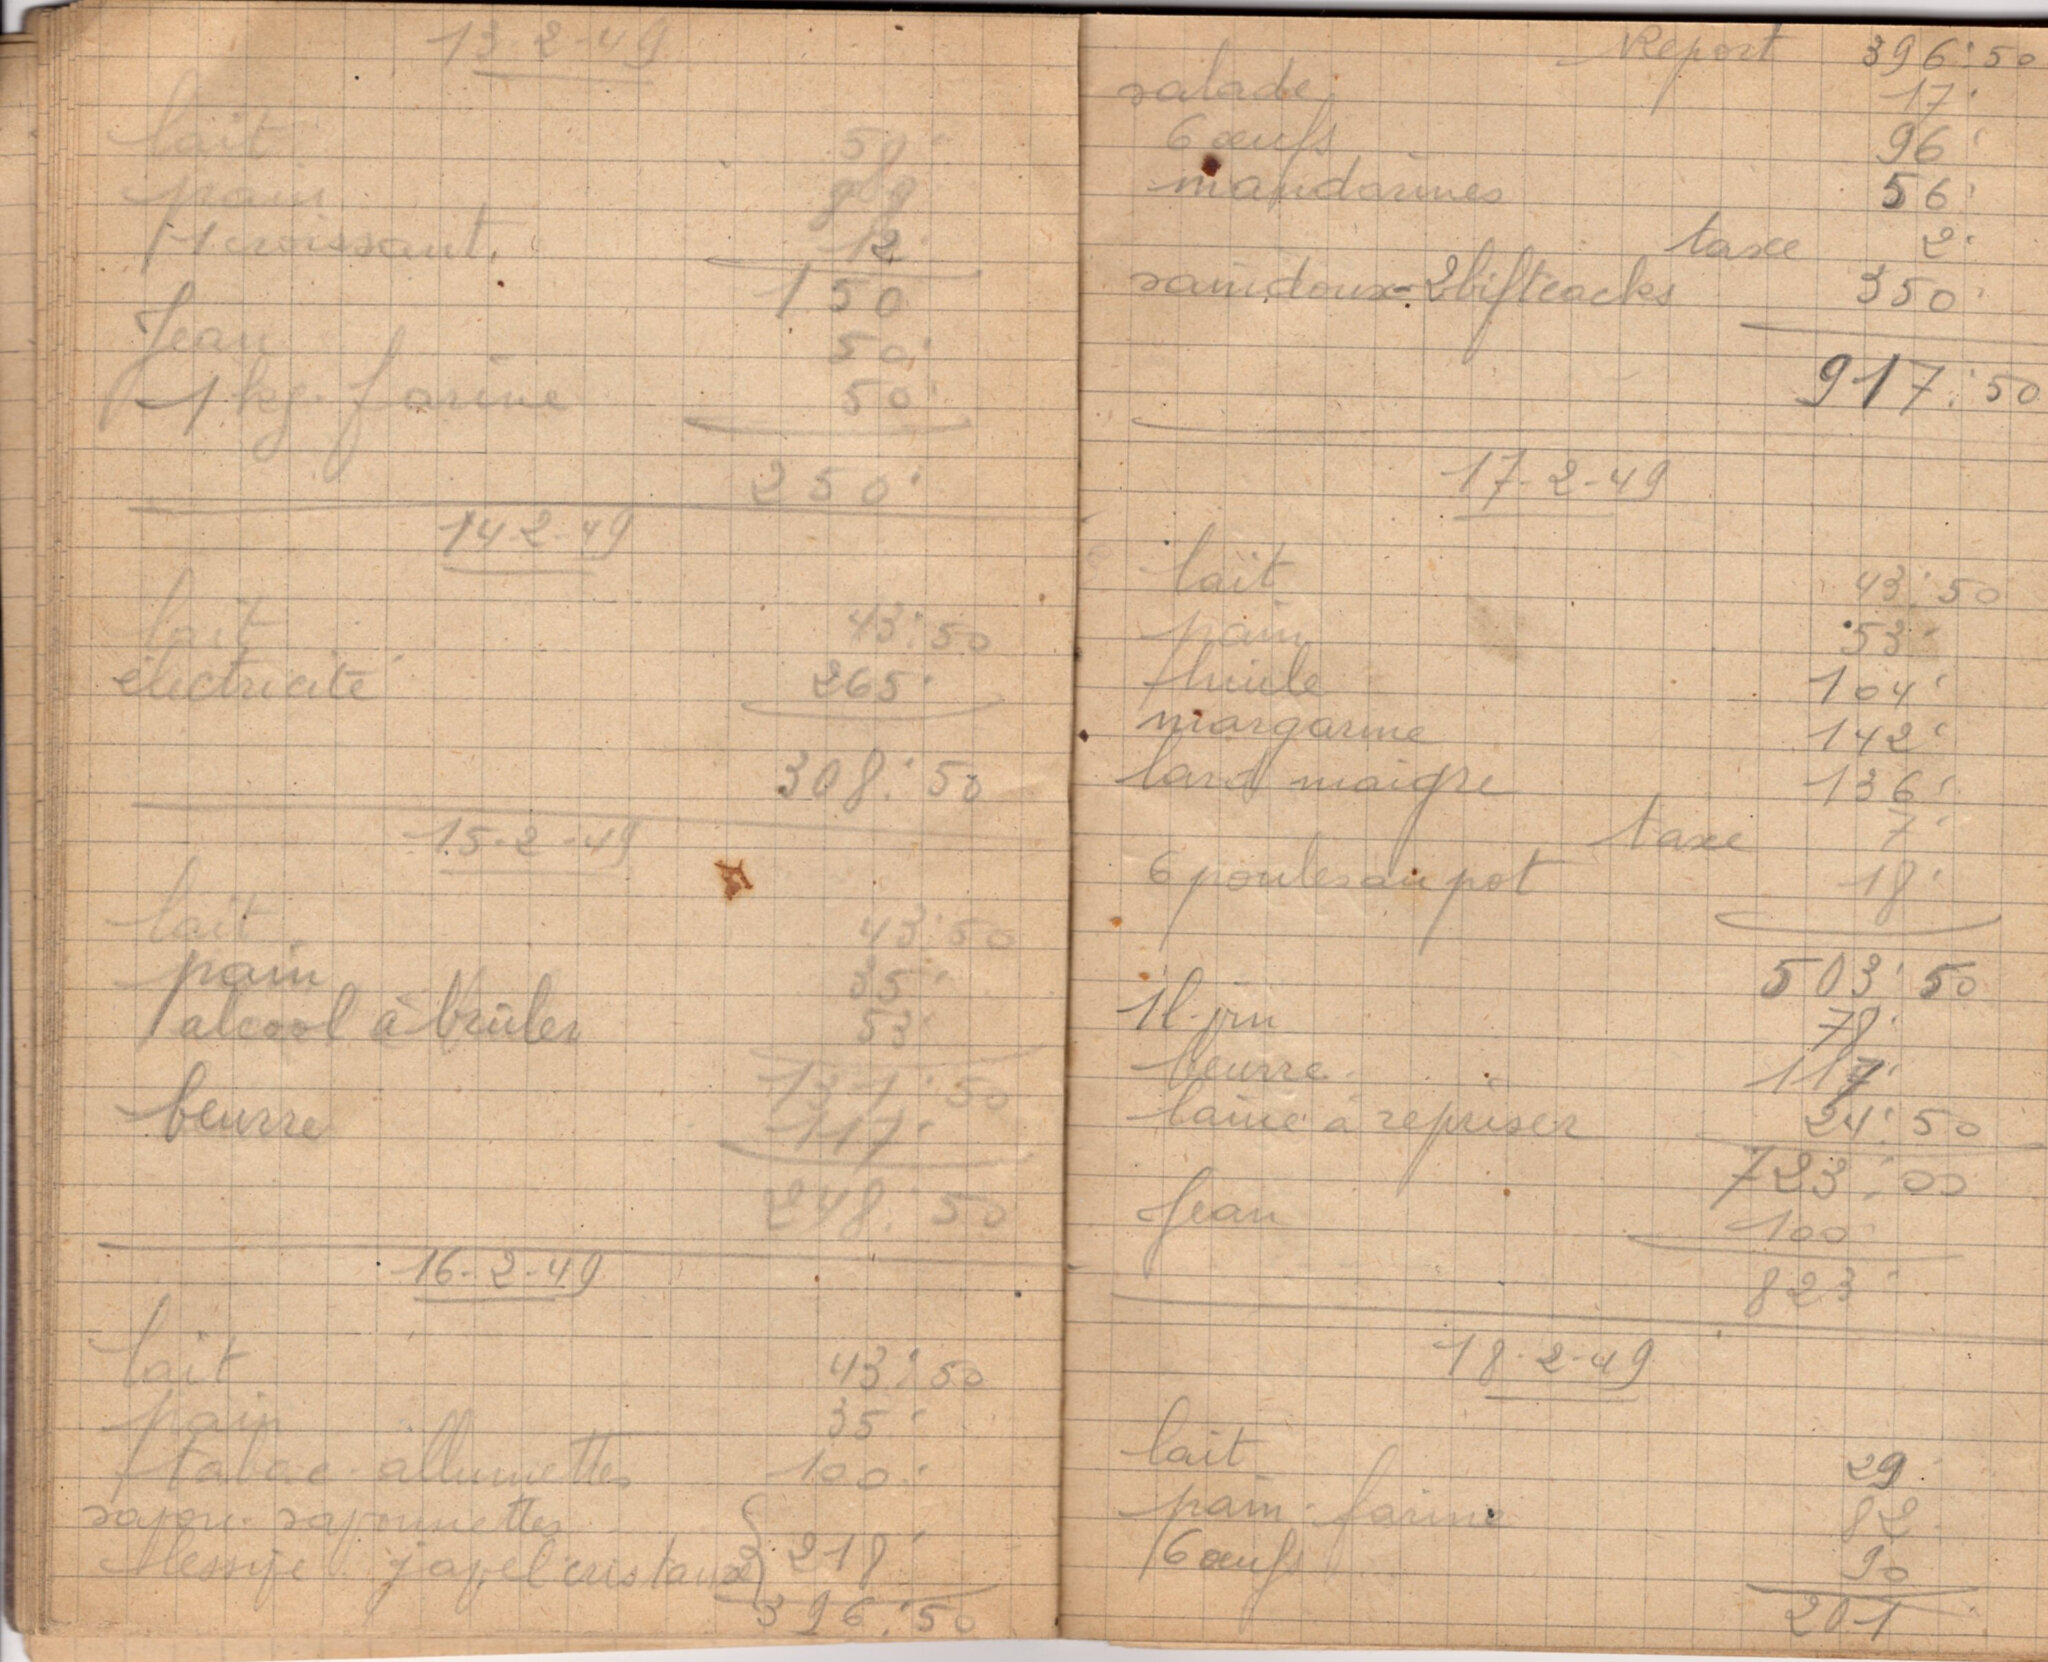 13 2-49
lait 58:
pain
1 croissant. 12:
150
Jean 50:
1 kg. farine 50:
250:
14-2-49
lait 43:50
électricité 265:
308:50
15-2-49
lait 43:50
pain 35:
alcool à brûler 53:
131:50
beurre 117:
248:50
16-2-49
lait 43:50
pain 35:
tabac. allumettes 100:
savon. savonnettes
lessive. javel cristaux } 218:
396:50
Report 396:50
salade 17:
6 œufs 96:
mandarines 56:
taxe 2:
saindoux-2 bifteacks 350:
917:50
17-2-49
lait 43:50
pain 53:
huile 104:
margarine 142:
lard maigre 136:
taxe 7:
6 poules au pot 18:
503:50
1l. vin 78:
beurre 117:
laine à repriser 24:50
723:00
Jean 100:
823:
18-2-49
lait 29
pain. farine 82
6 œufs 90
201